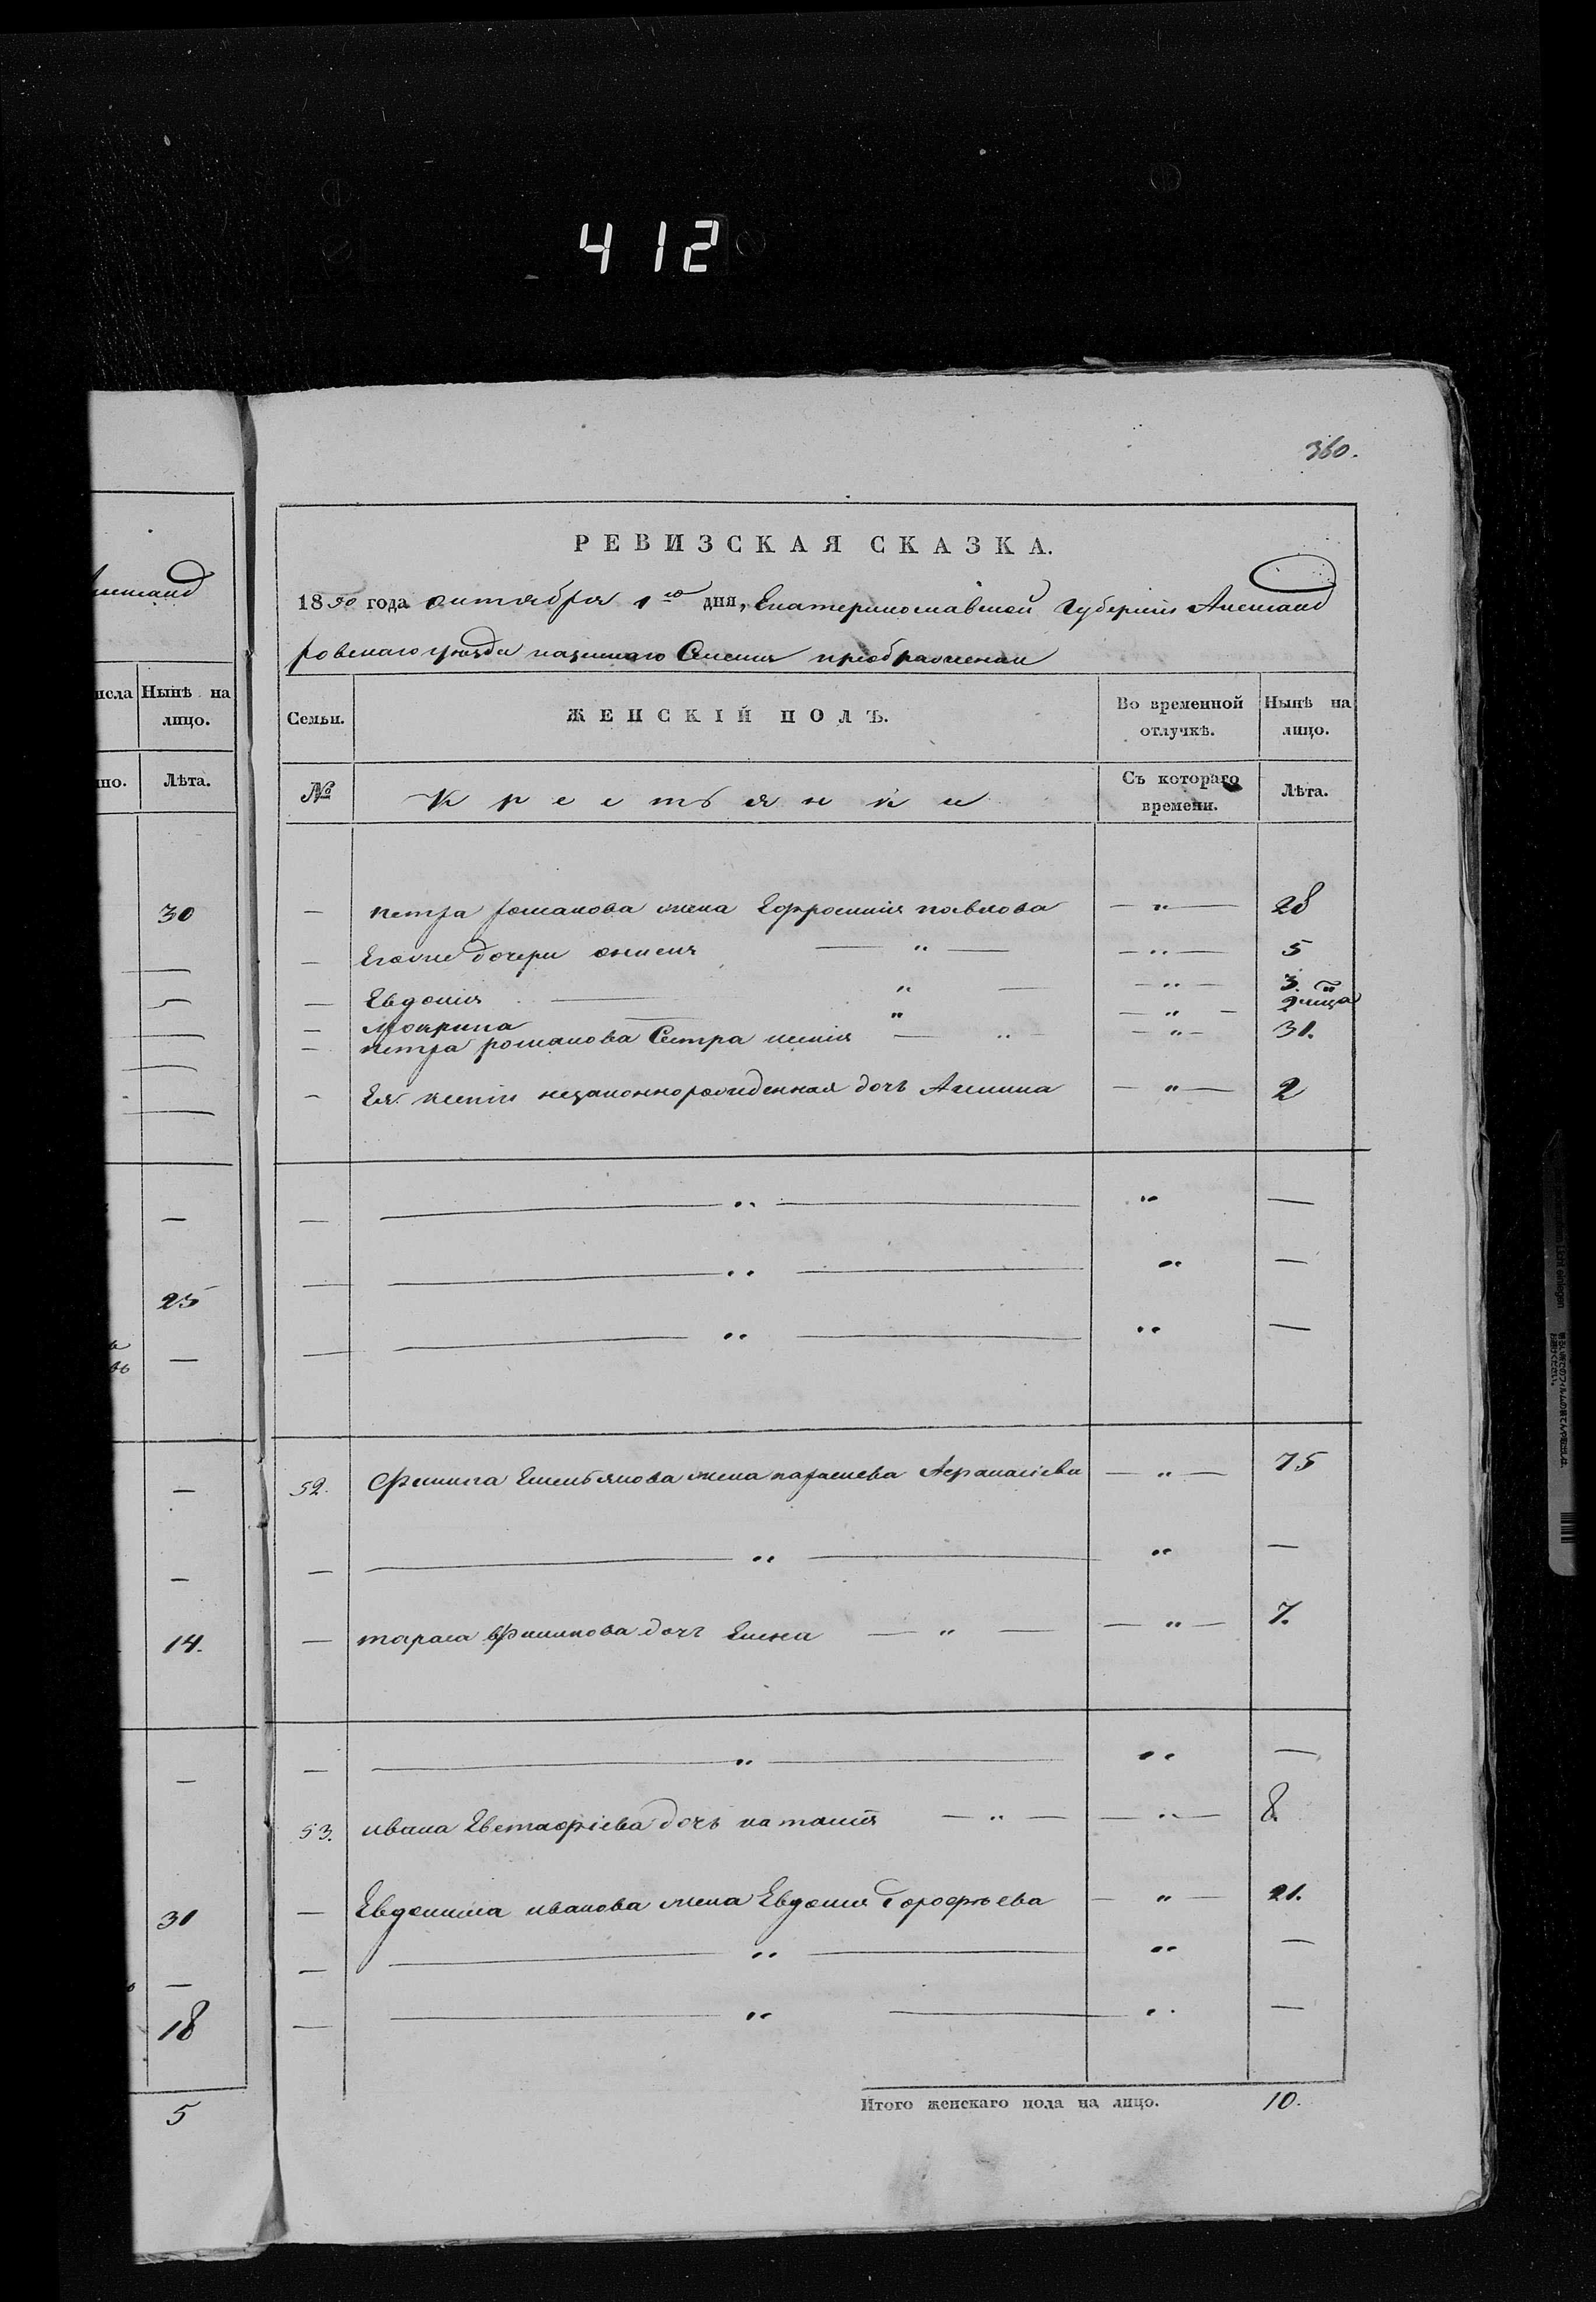 412
360.
РЕВИЗСКАЯ СКАЗКА.
1850 года октября 1го дня, Екатеринославской Губернии Александ
ровскаго уезда казеннаго Селения преображенки
Семьи. ЖЕНСКІЙ ПОЛЪ. Во временной отлучкѣ. Нынѣ на лицо.
№ Крестьянки Съ котораго времени. Лѣта.
— петра романова жена Ефросинія павлова — „ — 28
— Егоже дочери — „ — — „ — 5
— Евдокия — „ — — „ — 3.
— Мокрина — „ — „ — 2
— петра романова Сестра ксенія — „ — „ — 31.
— Ея ксении незаконнорожденная дочь Акилина — „ — 2
— — „ — „ —
— — „ — „ —
— — „ — „ —
52. Филипа Емельянова жена параскева Афанасіева — „ — 75
— — „ — „ —
— тараса Филипова дочь Елена — „ — — „ — 7.
— — „ — „ —
53. ивана Евстафіева дочь наталия — „ — — „ — 8.
— Евдокима иванова жена Евдокия — „ — 21.
— — „ — „ —
— — „ — „ —
Итого женскаго пола на лицо. 10.
Нынѣ на лицо.
Лѣта.
30
—
25
—
—
—
14.
—
31
—
18
5